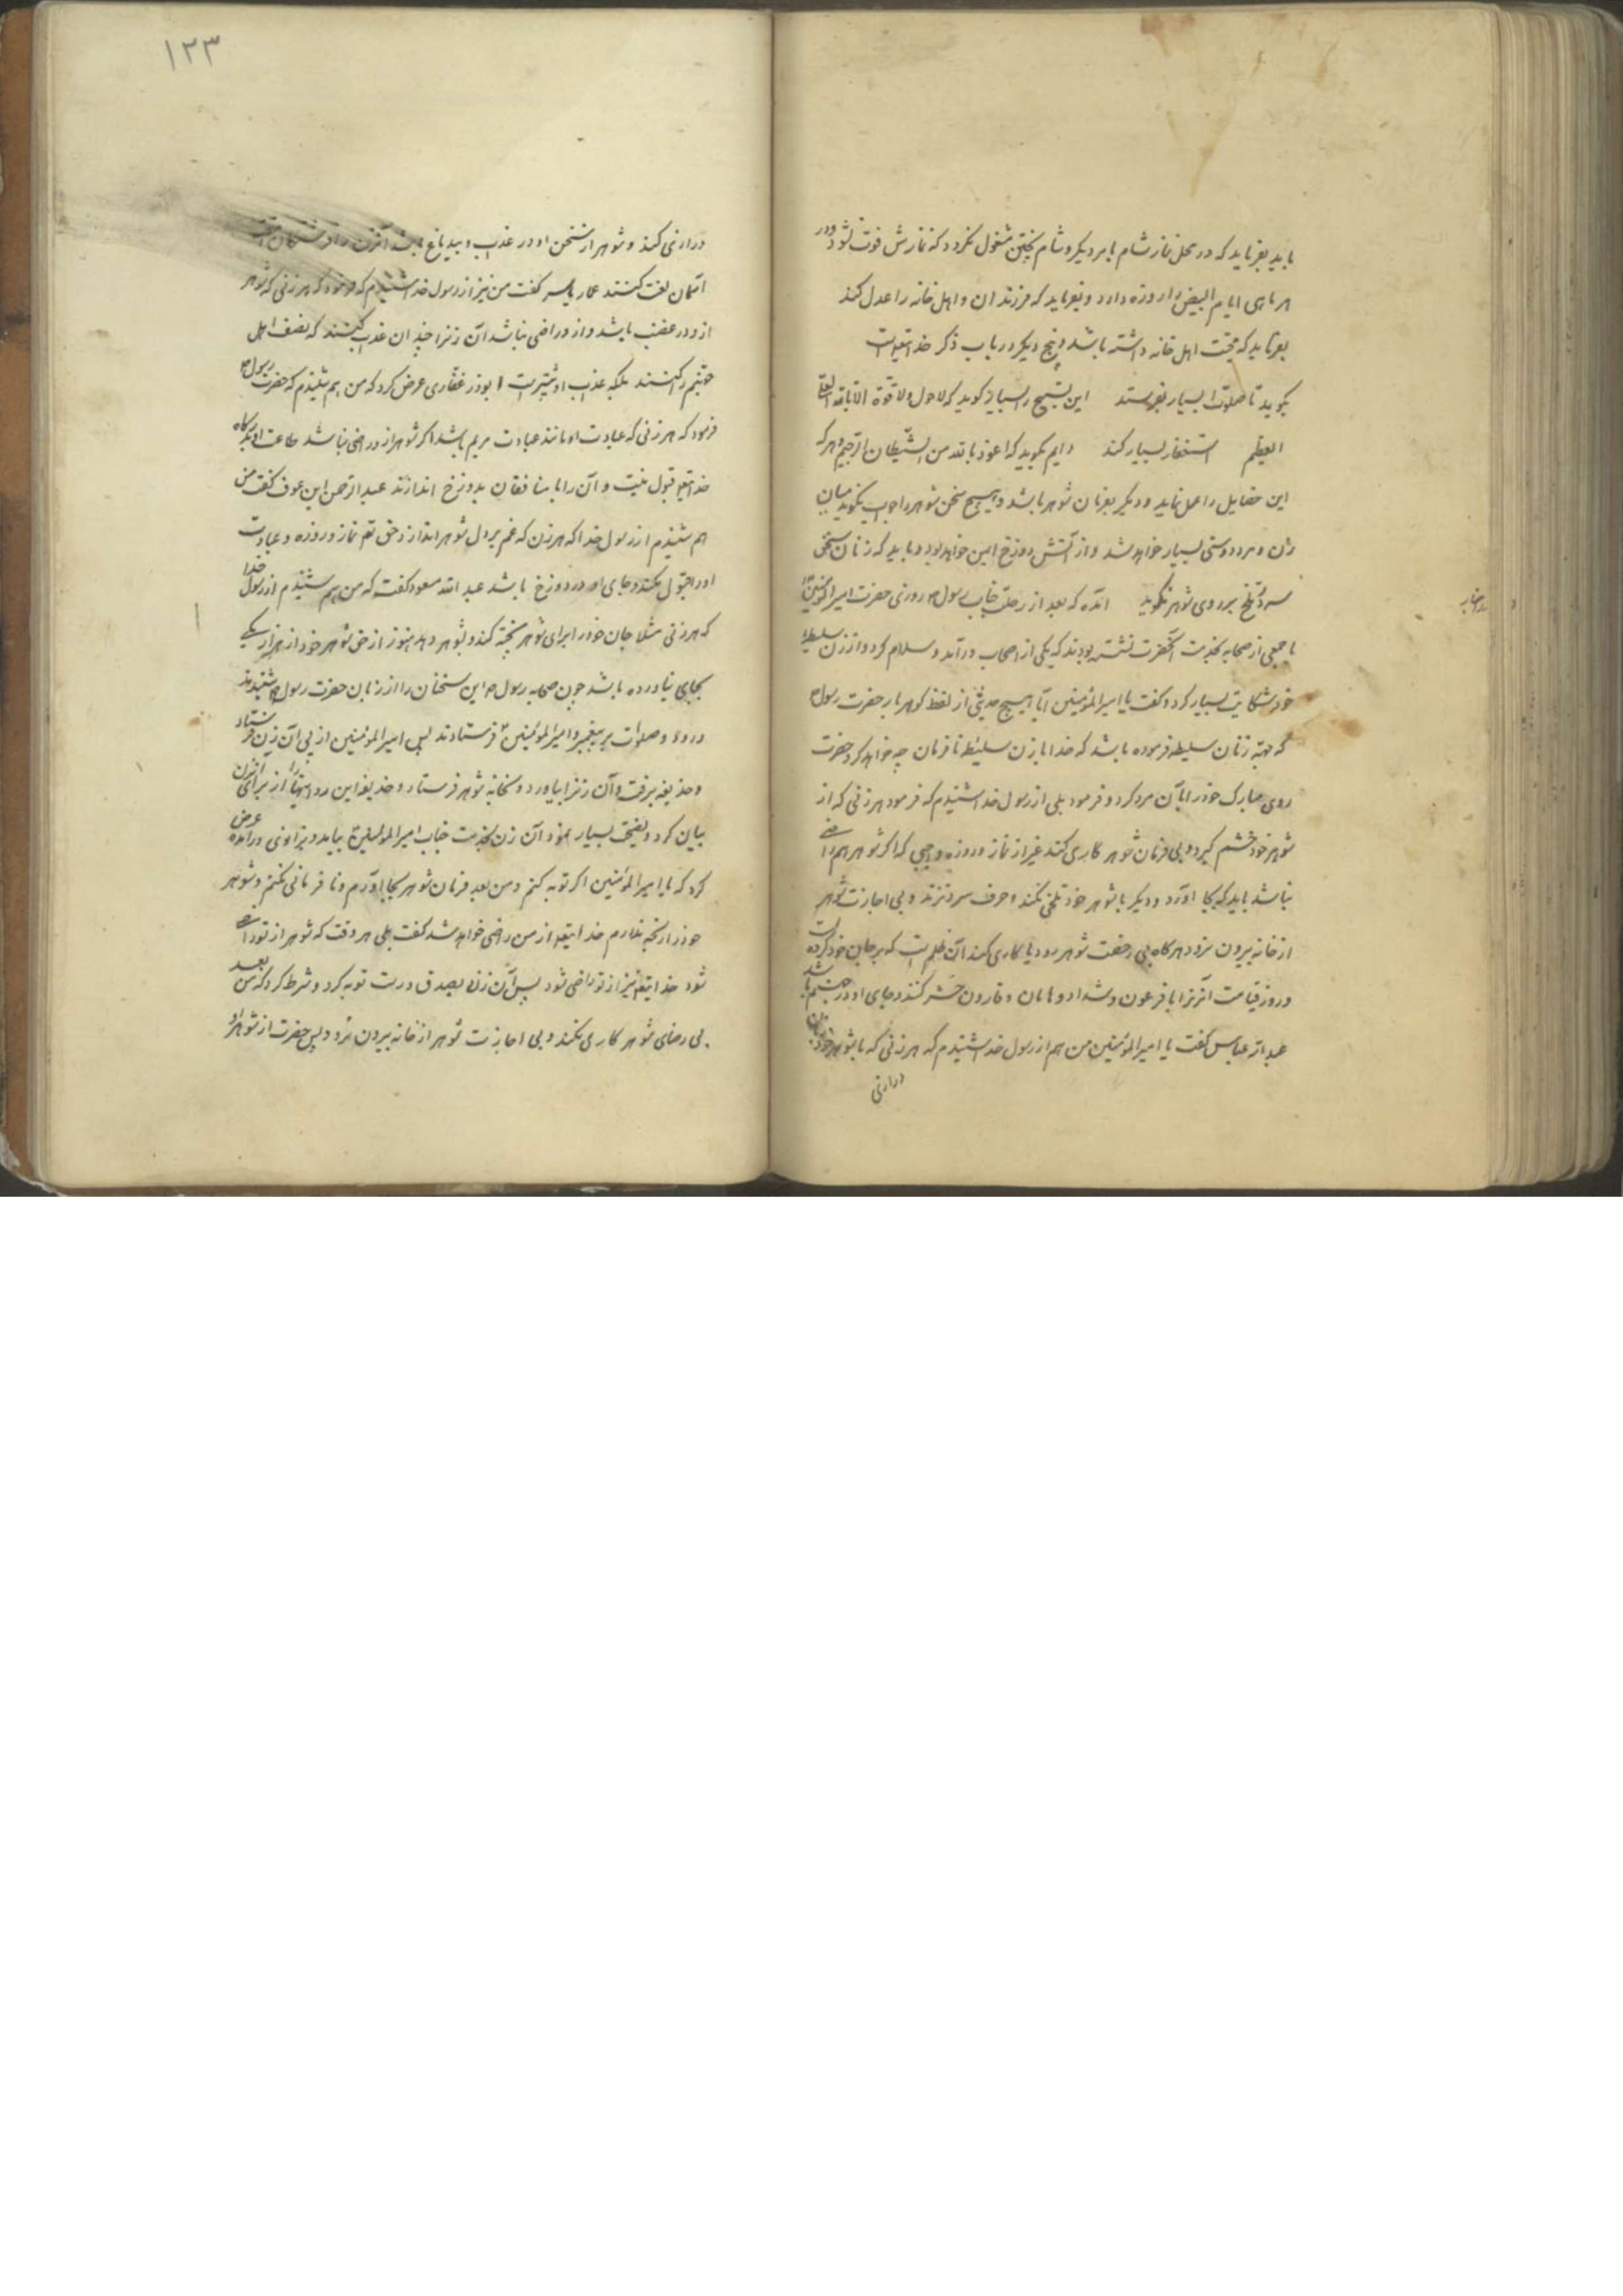 باید بفرماید که در محل نماز شام بامر دیگر و شام پختن مشغول نگردد که نمازش فوت نشود و در
هر ماهی ایام البیض را روزه دارد و بفرماید که فرزندان و اهل خانه را عدل کند
بفرماید که محبت اهل خانه داشته باشد و پنج دیگر در باب ذکر خدا تعالی است
بگوید تا صلوات بسیار بفرستد این تسبیح را بسیار گوید که لاحول ولا قوة الا بالله العلی
العظیم استغفار بسیار کند دایم بگوید که اعوذ بالله من الشیطان الرجیم و هر که
این خصایل را عمل نماید و دیگر بفرمان شوهر باشد و هیچ سخن شوهر را جواب نگوید میان
زن و مرد دوستی بسیار خواهد شد و از آتش دوزخ ایمن خواهد بود و باید که زنان سخن
سرد و تلخ بر روی شوهر نگوید آمده که بعد از رحلت جناب رسول روزی حضرت امیرالمؤمنین
با جمعی از صحابه بخدمت آنحضرت نشسته بودند که یکی از اصحاب درآمد و سلام کرد و از زن سلیطهٔ
خود شکایت بسیار کرد و گفت یا امیرالمؤمنین آیا هیچ حدیثی از لفظ گوهربار حضرت رسول
که جهة زنان سلیطه فرموده باشد که خدا با زن سلیطه نافرمان چه خواهد کرد حضرت
روی مبارک خود را بآن مرد کرد و فرمود بلی از رسول خدا شنیدم که فرمود هر زنی که از
شوهر خود خشم گیرد و بی فرمان شوهر کاری کند غیر از نماز و روزه واجبی که اگر شوهر هم راضی
نباشد باید که بجا آورد و دیگر با شوهر خود تلخی نکند و حرف سرد نزند و بی اجازت شوهر
از خانه بیرون نرود هرگاه بی رخصت شوهر رود یا کاری کند آن ظلم است که بر جان خود کرده است
و روز قیامت آنزنرا با فرعون و شداد و هامان و قارون حشر کنند و جای او در جهنم باشد
عبدالله عباس گفت یا امیرالمؤمنین من هم از رسول خدا شنیدم که هر زنی که با شوهر خود زبان
درازی
۱۲۳
درازی کند و شوهر از سخن او در عذاب و بیدماغ باشد آنزن را فرشتگان هفت
آسمان لعنت کنند عمار یاسر گفت من نیز از رسول خدا شنیدم که فرمود که هر زنی که شوهر
از و در غضب باشد و از و راضی نباشد آن زنرا چندان عذاب کنند که نصف اهل
جهنم را کنند بلکه عذاب او بیشتر است ابوذر غفاری عرض کرد که من هم شنیدم که حضرت رسول
فرمود که هر زنی که عبادت او مانند عبادت مریم باشد اگر شوهر از و راضی نباشد طاعت او بدرگاه
خدا تعالی قبول نیست و آن را با منافقان بدوزخ اندازند عبدالرحمن ابن عوف گفت من
هم شنیدم از رسول خدا که هر زن که غم بر دل شوهر اندازد حق تعم نماز و روزه و عبادت
او را قبول نکند و جای او در دوزخ باشد عبدالله مسعود گفت که من هم شنیدم از رسول خدا
که هر زنی مثلا جان خود را برای شوهر پخته کند و بشوهر دهد هنوز از حق شوهر خود از هزار یکی
بجای نیاورده باشد چون صحابه رسول این سخنان را از زبان حضرت رسول شنیدند
درود و صلوات بر پیغمبر و امیرالمؤمنین فرستادند پس امیرالمؤمنین از پی آن زن فرستاد
و حذیفه برفت و آن زنرا بیاورد و بخانه شوهر فرستاد و حذیفه این روایتها را از برای آنزن
بیان کرد و نصیحت بسیار نمود آن زن بخدمت جناب امیرالمؤمنین بیامد و بزانوی درآمده عرض
کرد که یا امیرالمؤمنین اگر توبه کنم و من بعد فرمان شوهر بجا آورم و نافرمانی نکنم و شوهر
خود را رنجه ندارم خدا تعالی از من راضی خواهد شد گفت بلی هر وقت که شوهر از تو راضی
شود خدا تعالی نیز از تو راضی شود پس آن زن بصدق درست توبه کرد و شرط کرد که من بعد
بی رضای شوهر کاری نکند و بی اجازت شوهر از خانه بیرون نرود پس حضرت از شوهر او